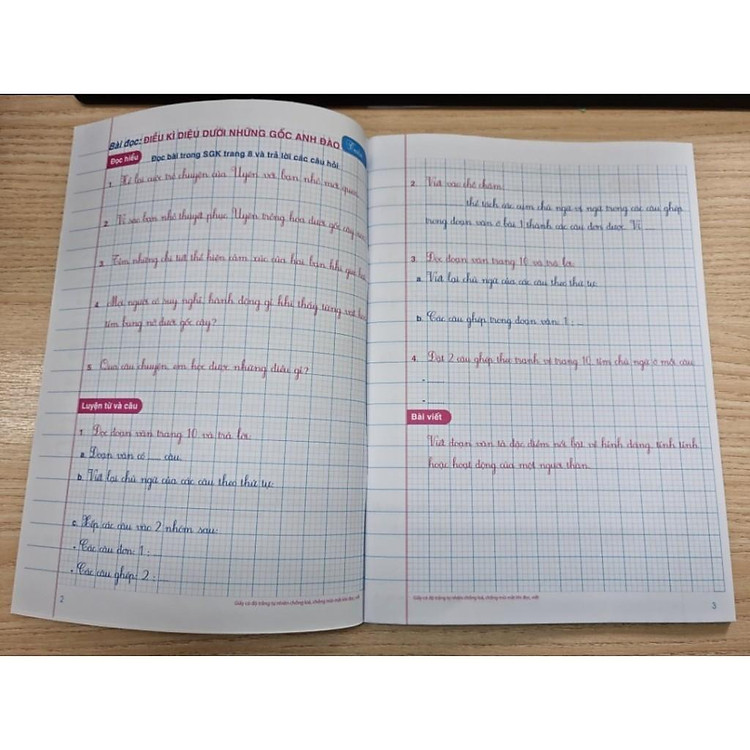 Bài đọc: ĐIỀU KÌ DIỆU DƯỚI NHỮNG GỐC ANH ĐÀO
Tuần
Đọc hiểu Đọc bài trong SGK trang 8 và trả lời các câu hỏi
1. Kể lại cuộc trò chuyện của Uyên với bạn nhỏ mới quen.
2. Vì sao bạn nhỏ thuyết phục Uyên trồng hoa dưới gốc cây
3. Tìm những chi tiết thể hiện cảm xúc của hai bạn khi
4. Mọi người có suy nghĩ, hành động gì khi thấy từng vạt hoa
tím bừng nở dưới gốc cây?
5. Qua câu chuyện, em học được những điều gì?
Luyện từ và câu
1. Đọc đoạn văn trang 10 và trả lời.
a. Đoạn văn có ... câu.
b. Viết lại chủ ngữ của các câu theo thứ tự:
c. Xếp các câu vào 2 nhóm sau:
- Các câu đơn: 1 : ...
- Các câu ghép: 2 :
2
Giấy có độ trắng tự nhiên chống loá, chống mỏi mắt khi đọc, viết
2. Viết vào chỗ chấm:
thể tách các cụm chủ ngữ vị ngữ trong các câu ghép
trong đoạn văn ở bài 1 thành các câu đơn được. Vì ...
3. Đọc đoạn văn trang 10 và trả lời.
a. Viết lại chủ ngữ của các câu theo thứ tự:
b. Các câu ghép trong đoạn văn: 1 : ...
4. Đặt 2 câu ghép theo tranh vẽ trang 10, tìm chủ ngữ ở mỗi câu.
- ......
- ......
Bài viết
Viết đoạn văn tả đặc điểm nổi bật về hình dáng, tính tình
hoặc hoạt động của một người thân.
Giấy có độ trắng tự nhiên chống loá, chống mỏi mắt khi đọc, viết
3